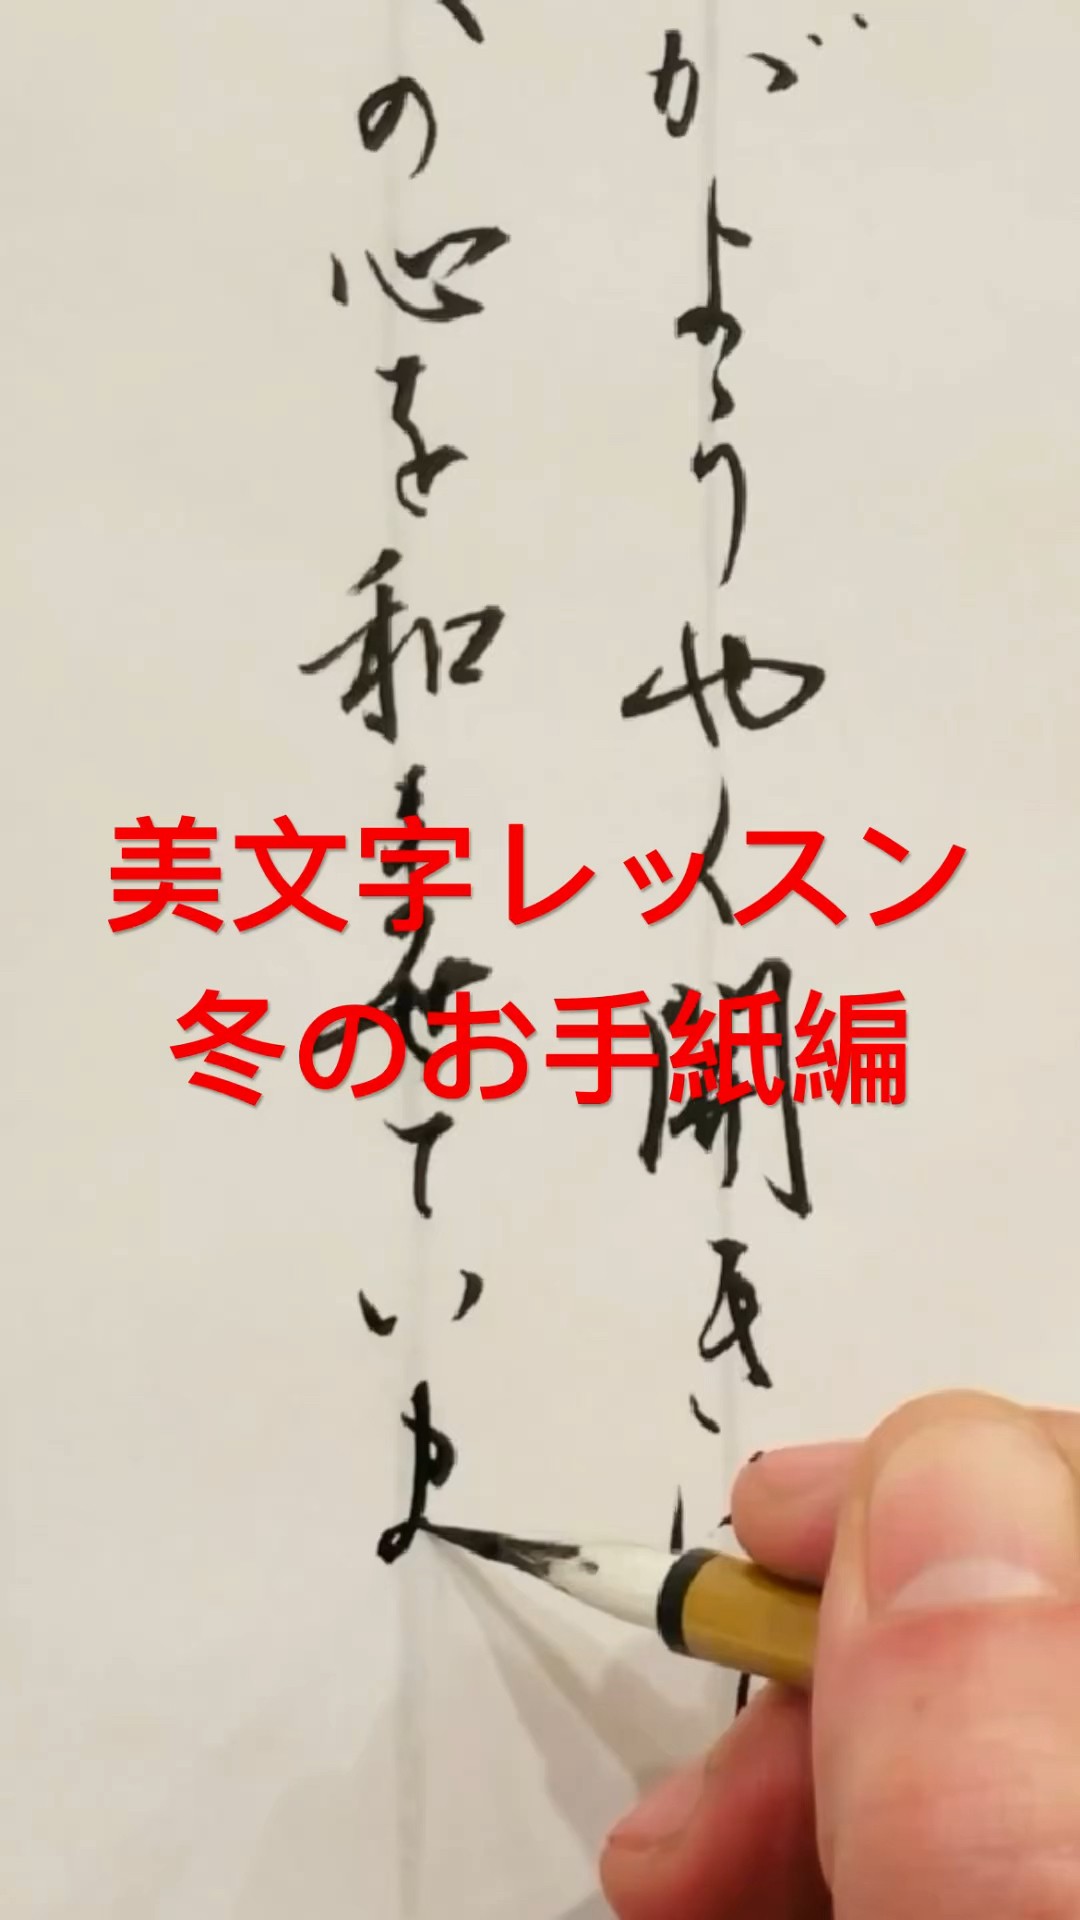 がようやく開き
の心を和ませていま
美文字レッスン
冬のお手紙編